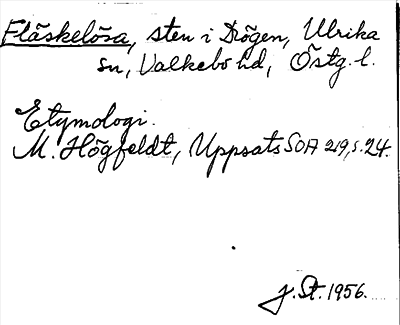 Fläskelösa, sten i Drögen, Ulrika
sn, Valkebo hd, Östg. l.
Etymologi.
M. Högfeldt, Uppsats SOA 219, s. 24.
J. St. 1956.